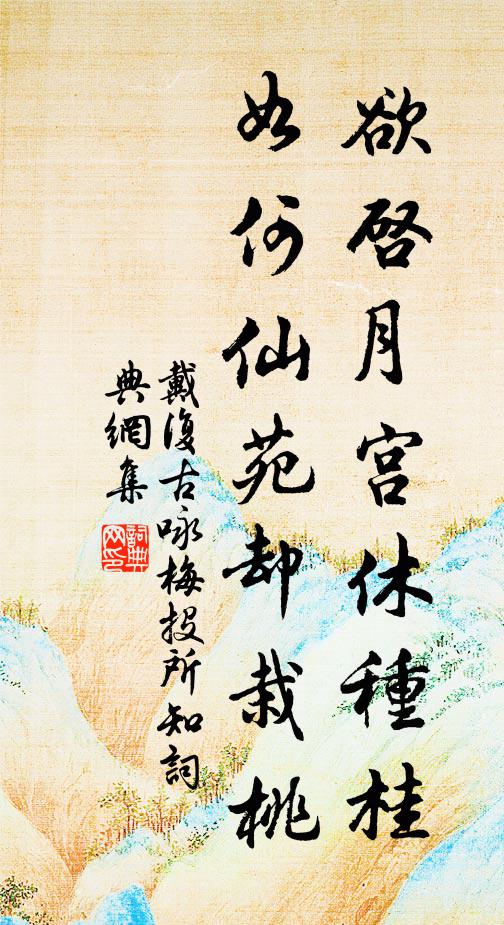 欲啓月宮休種桂
如何仙苑却栽桃
戴復古咏梅投所知詞
典網集
詞典網印